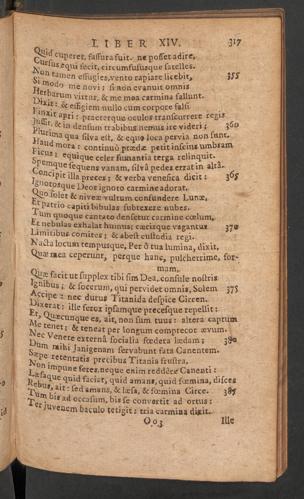 LIBER XIV. 317
Quid cuperet, fassura fuit. ne posset adire,
Cursus equi fecit, circumfususque satelles.
Non tamen effugies, vento rapiare licebit, 355
Si modo me novi: si non evanuit omnis
Herbarum virtus, & me mea carmina fallunt.
Dixit: & effigiem nullo cum corpore falsi
Finxit apri: præterque oculos transcurrere regis
Jussit, & in densum trabibus nemus ire videri; 360
Plurima qua silva est, & equo loca pervia non sunt.
Haud mora: continuò prædæ petit inscius umbram
Ficus: equique celer fumantia terga relinquit.
Spemque sequens vanam, silvâ pedes errat in altâ.
Concipit illa preces; & verba venefica dicit: 365
Ignotosque Deos ignoto carmine adorat.
Quo solet & niveæ vultum confundere Lunæ,
Et patrio capiti bibulas subtexere nubes.
Tum quoque cantato densetur carmine cœlum,
Et nebulas exhalat humus; cæcisque vagantur 370
Limitibus comites; & abest custodia regi.
Nacta locum tempusque, Per ô tua lumina, dixit,
Quæ mea ceperunt, perque hanc, pulcherrime, for-
mam,
Quæ facit ut supplex tibi sim Dea, consule nostris
Ignibus; & socerum, qui pervidet omnia, Solem 375
Accipe: nec durus Titanida despice Circen.
Dixerat: ille ferox ipsamque precesque repellit:
Et, Quæcunque es, ait, non sum tuus: altera captum
Me tenet; & teneat per longum comprecor ævum.
Nec Venere externâ socialia fœdera lædam; 380
Dum mihi Janigenam servabunt fata Canentem.
Sæpe retentatis precibus Titania frustra,
Non impune feres: neque enim reddere Canenti:
Læsaque quid faciat, quid amans, quid fœmina, disces
Rebus, ait: sed amans, & læsa, & fœmina Circe. 385
Tum bis ad occasum, bis se convertit ad ortus:
Ter juvenem baculo tetigit: tria carmina dixit.
Oo3 Ille